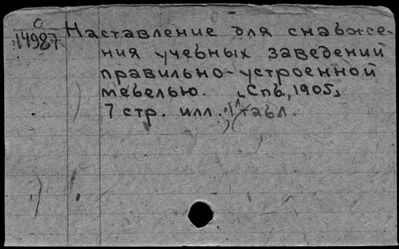 О
14987
Наставление для снабже-
ния учебных заведений
правильно-устроенной
мебелью. „Спб, 1905„
7 стр. илл. табл.